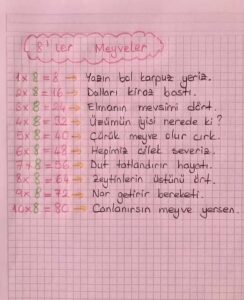 8'ler Meyveler
1x8=8 → Yazın bol karpuz yeriz.
2x8=16 → Dalları kiraz bastı.
3x8=24 → Elmanın mevsimi dört.
4x8=32 → Üzümün iyisi nerede ki?
5x8=40 → Çürük meyve olur çırk.
6x8=48 → Hepimiz çilek severiz.
7x8=56 → Dut tatlandırır hayatı.
8x8=64 → Zeytinlerin üstünü ört.
9x8=72 → Nar getirir bereketi.
10x8=80 → Canlanırsın meyve yersen.